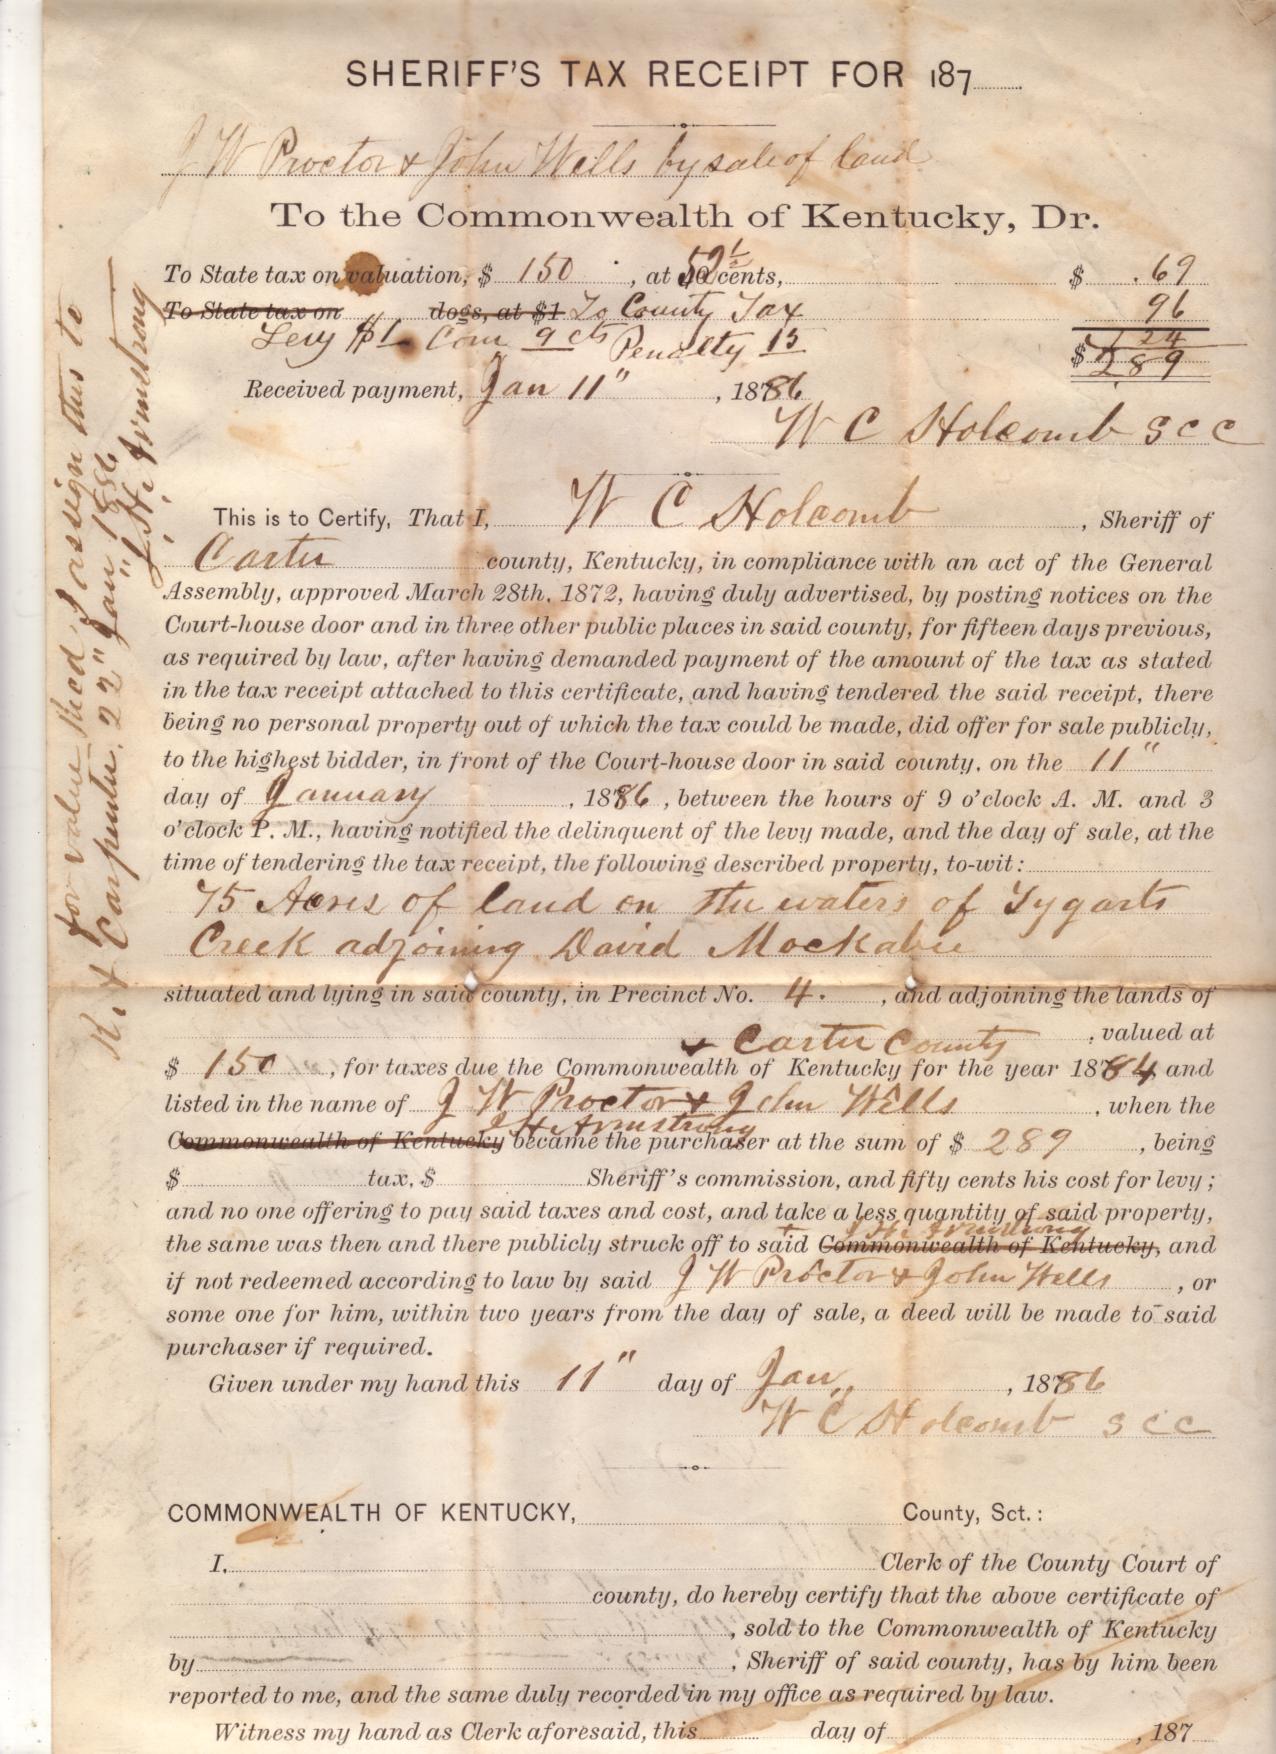 SHERIFF'S TAX RECEIPT FOR 187
J W Proctor & John Wells by sale of land
To the Commonwealth of Kentucky, Dr.
To State tax on valuation, $ 150 , at 52½ cents, $ .69
To State tax on dogs, at $1 To County Tax 96
Levy $1 Com 9 cts Penalty 15 1 24
$ 2 89
Received payment, Jan 11" , 1886
W C Holcomb S C C
This is to Certify, That I, W C Holcomb , Sheriff of
Carter county, Kentucky, in compliance with an act of the General
Assembly, approved March 28th, 1872, having duly advertised, by posting notices on the
Court-house door and in three other public places in said county, for fifteen days previous,
as required by law, after having demanded payment of the amount of the tax as stated
in the tax receipt attached to this certificate, and having tendered the said receipt, there
being no personal property out of which the tax could be made, did offer for sale publicly,
to the highest bidder, in front of the Court-house door in said county, on the 11"
day of January , 1886 , between the hours of 9 o'clock A. M. and 3
o'clock P. M., having notified the delinquent of the levy made, and the day of sale, at the
time of tendering the tax receipt, the following described property, to-wit:
75 Acres of land on the waters of Tygarts
Creek adjoining David Mockabee
situated and lying in said county, in Precinct No. 4. , and adjoining the lands of
& Carter County , valued at
$ 150 , for taxes due the Commonwealth of Kentucky for the year 1884 and
listed in the name of J W Proctor & John Wells , when the
J. H. Armstrong
Commonwealth of Kentucky became the purchaser at the sum of $ 2 89 , being
$ tax, $ Sheriff's commission, and fifty cents his cost for levy ;
and no one offering to pay said taxes and cost, and take a less quantity of said property,
J. H. Armstrong
the same was then and there publicly struck off to said Commonwealth of Kentucky, and
if not redeemed according to law by said J W Proctor & John Wells , or
some one for him, within two years from the day of sale, a deed will be made to said
purchaser if required.
Given under my hand this 11" day of Jan , 1886
W C Holcomb S C C
COMMONWEALTH OF KENTUCKY, County, Sct. :
I, Clerk of the County Court of
county, do hereby certify that the above certificate of
, sold to the Commonwealth of Kentucky
by , Sheriff of said county, has by him been
reported to me, and the same duly recorded in my office as required by law.
Witness my hand as Clerk aforesaid, this day of , 187
for value Recd I assign this to
Carpenter. 22" Jan 1886
J. H. Armstrong